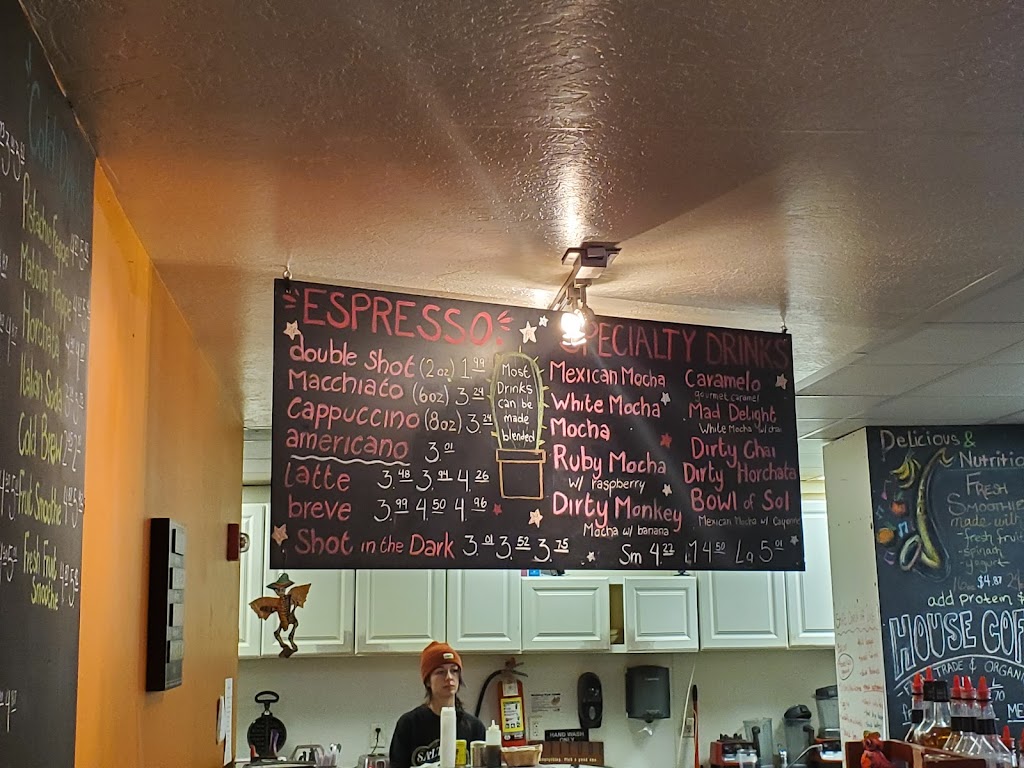 Cold
Pistachio Frappe
Matcha Frappe
Horchata
Italian Soda
Cold Brew
Fruit Smoothie
Fresh Fruit
Smoothie
ESPRESSO:
double shot (2 oz) 1.99
Macchiato (6oz) 3.24
Cappuccino (8oz) 3.24
americano 3.01
latte 3.48 3.94 4.26
breve 3.99 4.50 4.96
Shot in the Dark 3.01 3.52 3.75
Most
Drinks
can be
made
blended
SPECIALTY DRINKS
Mexican Mocha
White Mocha
Mocha
Ruby Mocha
w/ raspberry
Dirty Monkey
Mocha w/ banana
Caramelo
gourmet caramel
Mad Delight
White Mocha w/ chai
Dirty Chai
Dirty Horchata
Bowl of Sol
Mexican Mocha w/ Cayenne
Sm 4.23 M 4.50 La 5.01
Delicious &
Nutritio
FRESH
SMOOTHIE
made with
-fresh fruit
-spinach
-yogurt
16oz $4.87
add protein $
HOUSE COF
TRADE & ORGANI
HAND WASH
ONLY